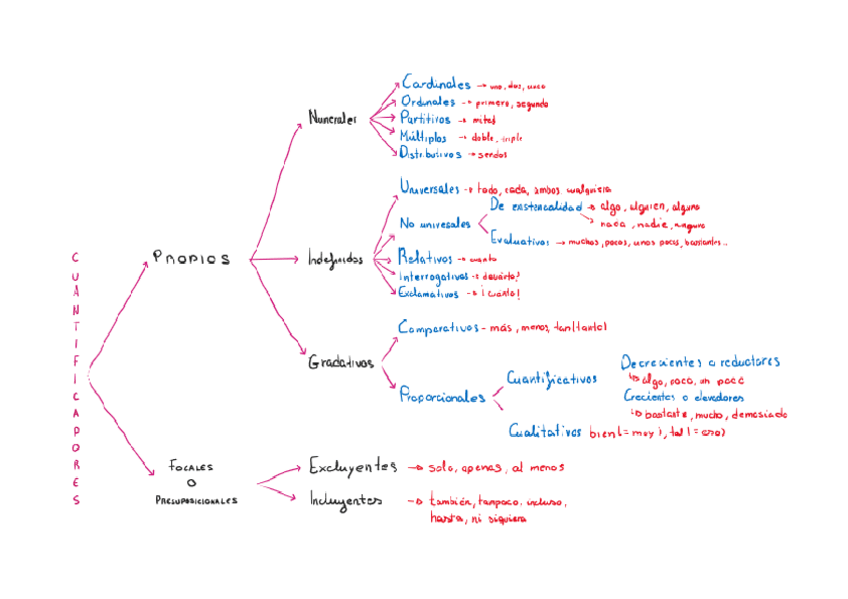 CUANTIFICADORES
PROPIOS
Numerales
Cardinales → uno, dos, once
Ordinales → primero, segundo
Partitivos → mitad
Múltiplos → doble, triple
Distributivos → sendos
Indefinidos
Universales → todo, cada, ambos, cualquiera
No universales
De existencialidad → algo, alguien, alguno
→ nada, nadie, ninguno
Evaluativos → muchos, pocos, unos pocos, bastantes...
Relativos → cuanto
Interrogativos → ¿cuánto?
Exclamativos → ¡cuánto!
Gradativos
Comparativos - más, menos, tan(tanto)
Proporcionales
Cuantificativos
Decrecientes o reductores
↳ algo, poco, un poco
Crecientes o elevadores
↳ bastante, mucho, demasiado
Cualitativos bien(=muy), tal(=eso)
FOCALES
O
PRESUPOSICIONALES
Excluyentes → solo, apenas, al menos
Incluyentes → también, tampoco, incluso,
hasta, ni siquiera